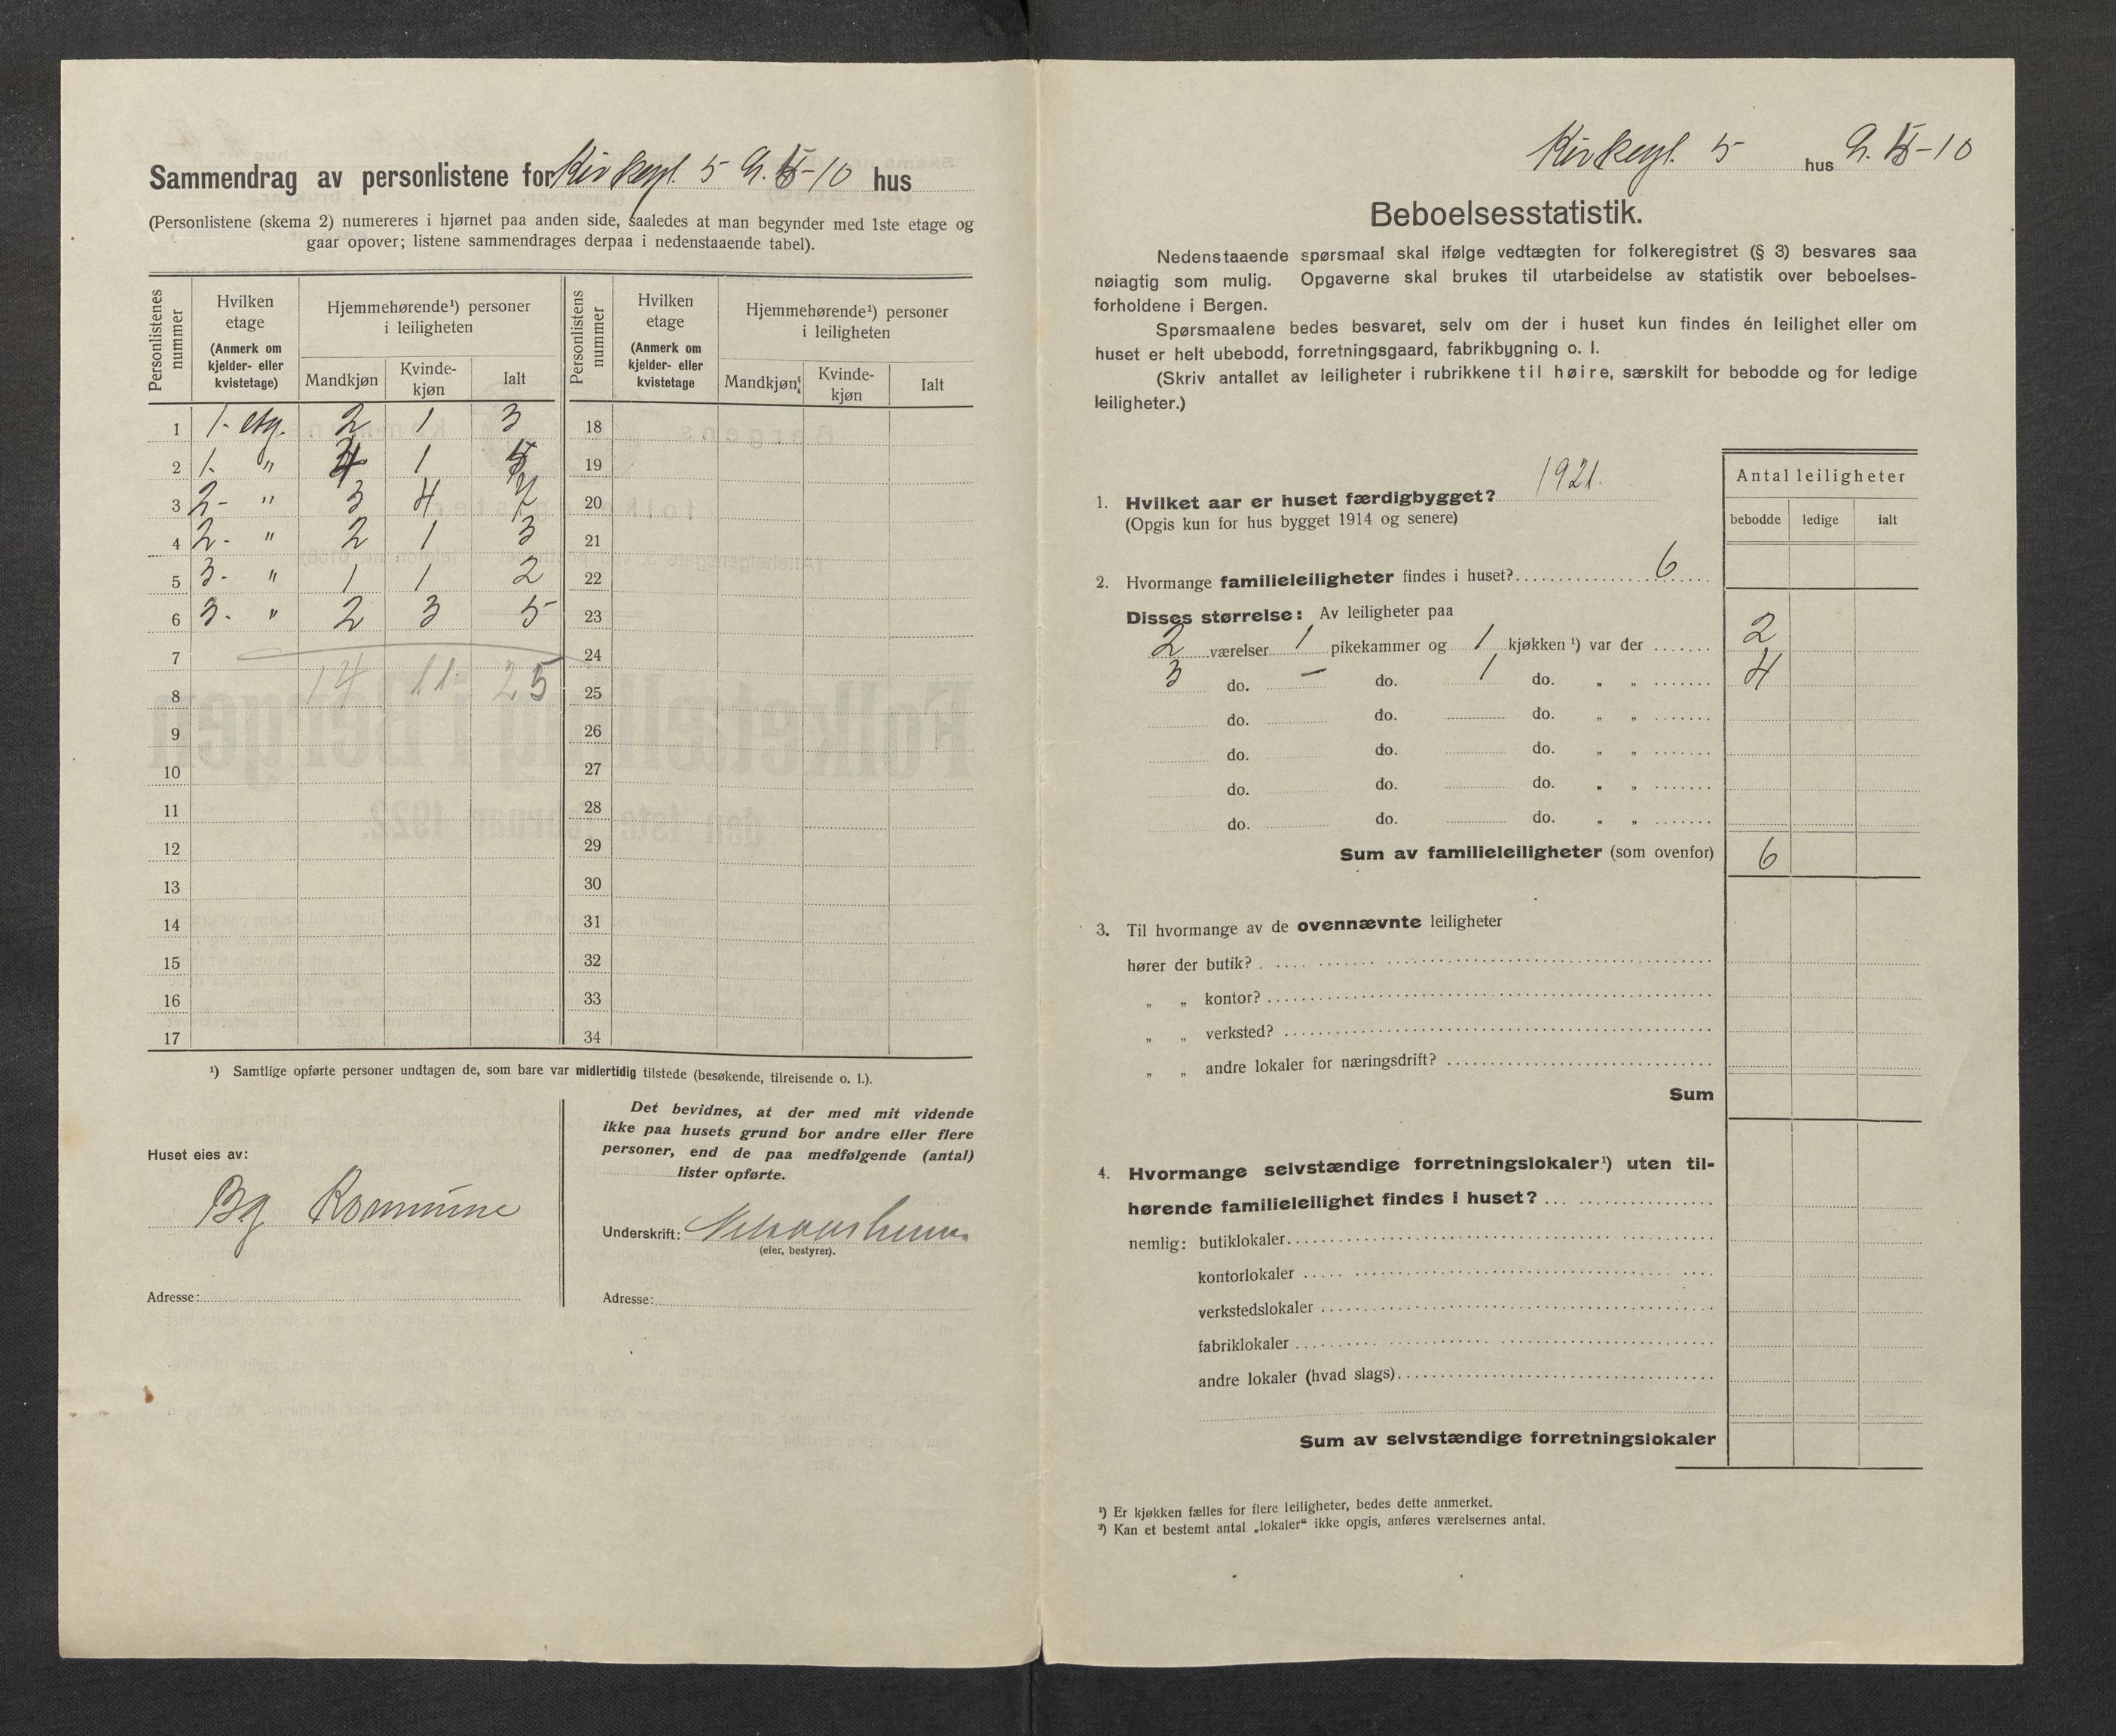 Sammendrag av personlistene for Kirkegt. 5 G. II-10 hus
(Personlistene (skema 2) numereres i hjørnet paa anden side, saaledes at man begynder med 1ste etage og
gaar opover; listene sammendrages derpaa i nedenstaaende tabel).
Personlistenes nummer
Hvilken etage (Anmerk om kjelder- eller kvistetage)
Hjemmehørende¹) personer i leiligheten
Mandkjøn Kvinde-kjøn Ialt
Personlistens nummer
Hvilken etage (Anmerk om kjelder- eller kvistetage
Hjemmehørende¹) personer i leiligheten
Mandkjøn Kvinde-kjøn Ialt
1 1. etg. 2 1 3 18
2 1. " 4 1 5 19
3 2- " 3 4 7 20
4 2- " 2 1 3 21
5 3- " 1 1 2 22
6 3- " 2 3 5 23
7 24
8 14 11 25 25
9 26
10 27
11 28
12 29
13 30
14 31
15 32
16 33
17 34
¹) Samtlige opførte personer undtagen de, som bare var midlertidig tilstede (besøkende, tilreisende o. l.).
Huset eies av:
Bg Kommune
Adresse:
Det bevidnes, at der med mit vidende
ikke paa husets grund bor andre eller flere
personer, end de paa medfølgende (antal)
lister opførte.
Underskrift:
(eier, bestyrer).
Adresse:
Kirkegt. 5 hus G. II-10
Beboelsesstatistik.
Nedenstaaende spørsmaal skal ifølge vedtægten for folkeregistret (§ 3) besvares saa
nøiagtig som mulig. Opgaverne skal brukes til utarbeidelse av statistik over beboelses-
forholdene i Bergen.
Spørsmaalene bedes besvaret, selv om der i huset kun findes én leilighet eller om
huset er helt ubebodd, forretningsgaard, fabrikbygning o. l.
(Skriv antallet av leiligheter i rubrikkene til høire, særskilt for bebodde og for ledige
leiligheter.)
Antal leiligheter
bebodde ledige ialt
1. Hvilket aar er huset færdigbygget? 1921.
(Opgis kun for hus bygget 1914 og senere)
2. Hvormange familieleiligheter findes i huset? 6
Disses størrelse: Av leiligheter paa
2 værelser 1 pikekammer og 1 kjøkken ¹) var der 2
3 do. — do. 1 do. „ „ 4
do. do. do. „ „
do. do. do. „ „
do. do. do. „ „
do. do. do. „ „
Sum av familieleiligheter (som ovenfor) 6
3. Til hvormange av de ovennævnte leiligheter
hører der butik?
„ „ kontor?
„ „ verksted?
„ „ andre lokaler for næringsdrift?
Sum
4. Hvormange selvstændige forretningslokaler¹) uten til-
hørende familieleilighet findes i huset?
nemlig: butiklokaler
kontorlokaler
verkstedslokaler
fabriklokaler
andre lokaler (hvad slags)
Sum av selvstændige forretningslokaler
¹) Er kjøkken fælles for flere leiligheter, bedes dette anmerket.
²) Kan et bestemt antal „lokaler“ ikke opgis, anføres værelsernes antal.